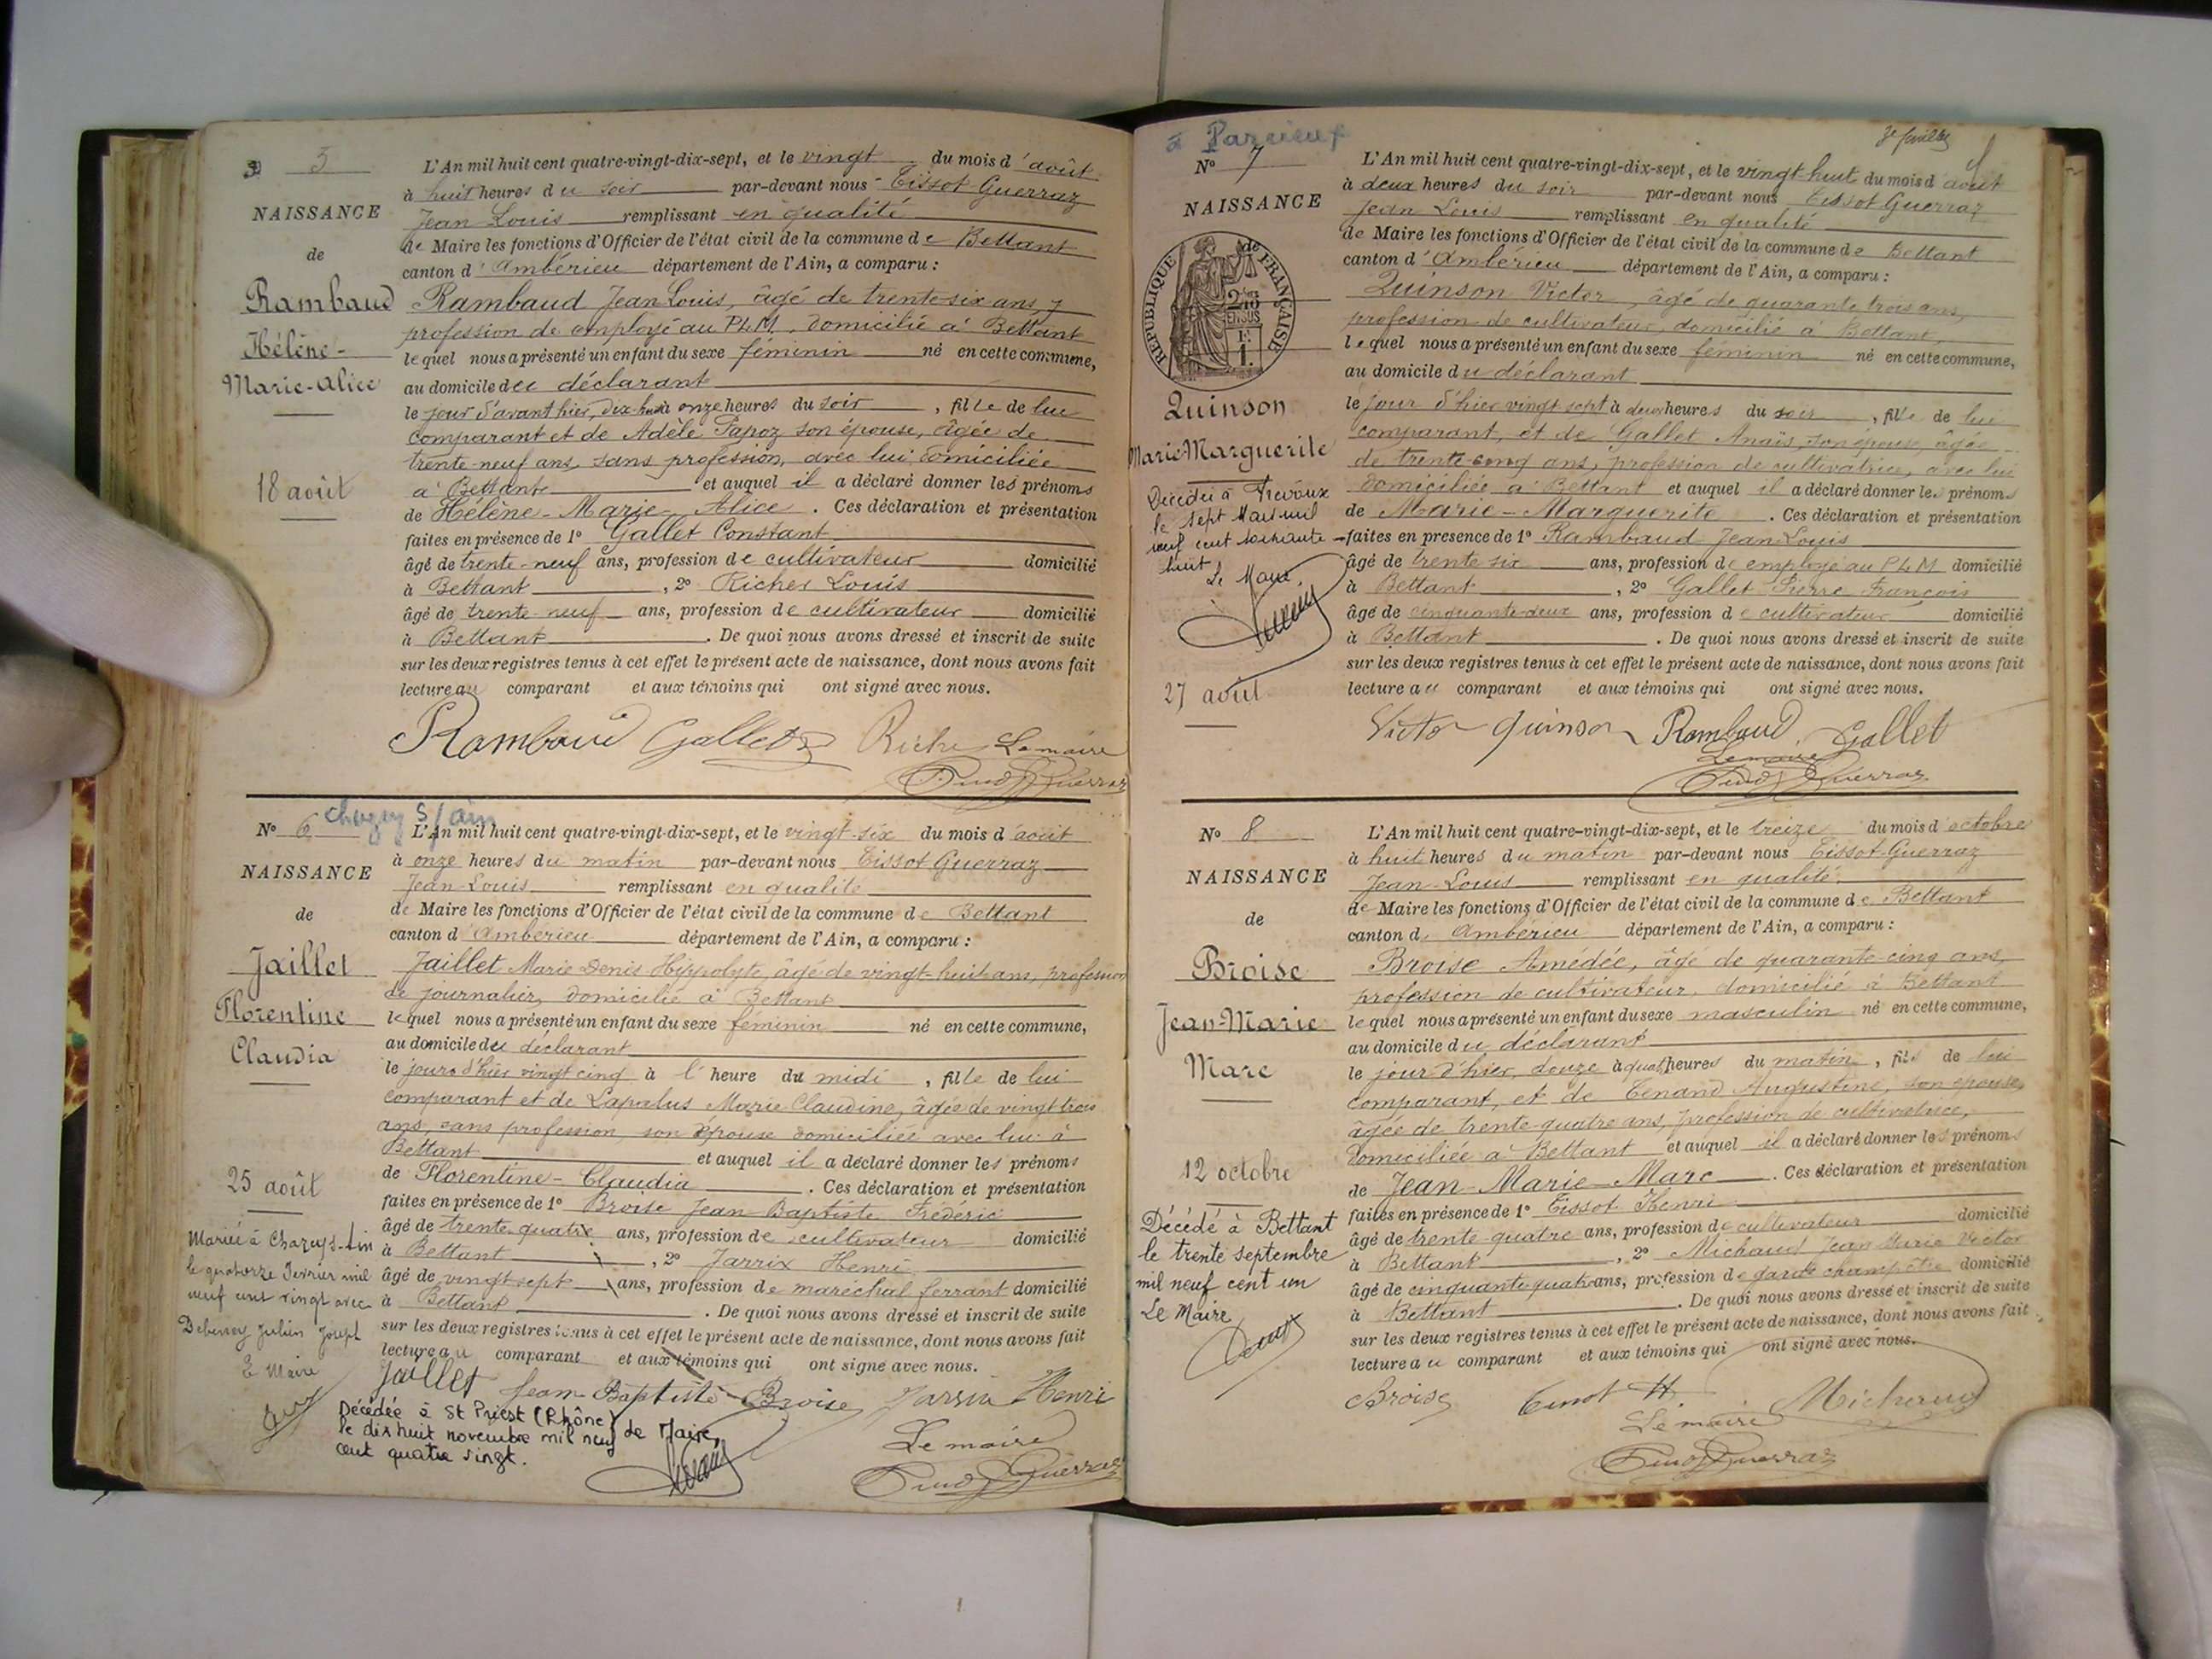 5
NAISSANCE
de
Rambaud
Hélène-
Marie-Alice
18 août
L'An mil huit cent quatre-vingt-dix-sept, et le vingt du mois d'août
à huit heures du soir par-devant nous Tissot-Guerraz
Jean Louis remplissant en qualité
de Maire les fonctions d'Officier de l'état civil de la commune de Bettant
canton d'Ambérieu département de l'Ain, a comparu :
Rambaud Jean Louis, âgé de trente six ans,
profession de employé au PLM, domicilié à Bettant
lequel nous a présenté un enfant du sexe féminin né en cette commune,
au domicile du déclarant
le jour d'avant hier, dix-huit à onze heures du soir, fille de lui
comparant et de Adèle Papoz son épouse, âgée de
trente-neuf ans, sans profession, avec lui domiciliée
à Bettant et auquel il a déclaré donner les prénoms
de Hélène-Marie-Alice. Ces déclaration et présentation
faites en présence de 1° Gallet Constant
âgé de trente-neuf ans, profession de cultivateur domicilié
à Bettant, 2° Richer Louis
âgé de trente-neuf ans, profession de cultivateur domicilié
à Bettant. De quoi nous avons dressé et inscrit de suite
sur les deux registres tenus à cet effet le présent acte de naissance, dont nous avons fait
lecture au comparant et aux témoins qui ont signé avec nous.
Rambaud Gallet Riche Le maire
Guerraz
N° 6
Chazey S/ain
NAISSANCE
de
Jaillet
Florentine
Claudia
25 août
Mariée à Chazey-s-Ain
le quatorze Février mil
neuf cent vingt avec
Julien Joseph
Le Maire
L'An mil huit cent quatre-vingt-dix-sept, et le vingt-six du mois d'août
à onze heures du matin par-devant nous Tissot-Guerraz
Jean-Louis remplissant en qualité
de Maire les fonctions d'Officier de l'état civil de la commune de Bettant
canton d'Ambérieu département de l'Ain, a comparu :
Jaillet Marie Denis Hippolyte, âgé de vingt-huit ans, profession
de journalier, domicilié à Bettant
lequel nous a présenté un enfant du sexe féminin né en cette commune,
au domicile du déclarant
le jour d'hier vingt cinq à l'heure du midi, fille de lui
comparant et de Lapalus Marie Claudine, âgée de vingt trois
ans, sans profession, son épouse domiciliée avec lui à
Bettant et auquel il a déclaré donner les prénoms
de Florentine-Claudia. Ces déclaration et présentation
faites en présence de 1° Broise Jean-Baptiste Frédéric
âgé de trente-quatre ans, profession de cultivateur domicilié
à Bettant, 2° Jarrix Henri
âgé de vingt sept ans, profession de maréchal ferrant domicilié
à Bettant. De quoi nous avons dressé et inscrit de suite
sur les deux registres tenus à cet effet le présent acte de naissance, dont nous avons fait
lecture au comparant et aux témoins qui ont signé avec nous.
Jaillet Jean Baptiste Broise Jarrix Henri
Le maire
Guerraz
Décédée à St Priest (Rhône)
le dix huit novembre mil neuf
cent quatre vingt.
Le Maire,
à Parcieux
3e feuillet
N° 7
NAISSANCE
de
REPUBLIQUE FRANÇAISE
Quinson
Marie-Marguerite
Décédée à Trévoux
le sept Mars mil
neuf cent soixante-
huit
Le Maire.
27 août
L'An mil huit cent quatre-vingt-dix-sept, et le vingt huit du mois d'août
à deux heures du soir par-devant nous Tissot Guerraz
Jean Louis remplissant en qualité
de Maire les fonctions d'Officier de l'état civil de la commune de Bettant
canton d'Ambérieu département de l'Ain, a comparu :
Quinson Victor, âgé de quarante trois ans,
profession de cultivateur, domicilié à Bettant,
lequel nous a présenté un enfant du sexe féminin né en cette commune,
au domicile du déclarant
le jour d'hier vingt sept à deux heures du soir, fille de lui
comparant, et de Gallet Anaïs, son épouse, âgée
de trente-cinq ans, profession de cultivatrice, avec lui
domiciliée à Bettant et auquel il a déclaré donner les prénoms
de Marie-Marguerite. Ces déclaration et présentation
faites en présence de 1° Rambaud Jean Louis
âgé de trente six ans, profession de employé au PLM domicilié
à Bettant, 2° Gallet Pierre François
âgé de cinquante-deux ans, profession de cultivateur domicilié
à Bettant. De quoi nous avons dressé et inscrit de suite
sur les deux registres tenus à cet effet le présent acte de naissance, dont nous avons fait
lecture au comparant et aux témoins qui ont signé avec nous.
Victor quinson Rambaud Gallet
Le maire
Guerraz
N° 8
NAISSANCE
de
Broise
Jean-Marie
Marc
12 octobre
Décédé à Bettant
le trente septembre
mil neuf cent un
Le Maire
L'An mil huit cent quatre-vingt-dix-sept, et le treize du mois d'octobre
à huit heures du matin par-devant nous Tissot-Guerraz
Jean-Louis remplissant en qualité
de Maire les fonctions d'Officier de l'état civil de la commune de Bettant
canton d'Ambérieu département de l'Ain, a comparu :
Broise Amédée, âgé de quarante-cinq ans,
profession de cultivateur, domicilié à Bettant
lequel nous a présenté un enfant du sexe masculin né en cette commune,
au domicile du déclarant
le jour d'hier, douze à quatre heures du matin, fils de lui
comparant, et de Tenand Augustine, son épouse,
âgée de trente-quatre ans, profession de cultivatrice,
domiciliée à Bettant et auquel il a déclaré donner les prénoms
de Jean-Marie-Marc. Ces déclaration et présentation
faites en présence de 1° Tissot Henri
âgé de trente-quatre ans, profession de cultivateur domicilié
à Bettant, 2° Michaud Jean Marie Victor
âgé de cinquante-quatre ans, profession de garde champêtre domicilié
à Bettant. De quoi nous avons dressé et inscrit de suite
sur les deux registres tenus à cet effet le présent acte de naissance, dont nous avons fait
lecture au comparant et aux témoins qui ont signé avec nous.
Broise Tissot H Michaud
Le maire
Guerraz